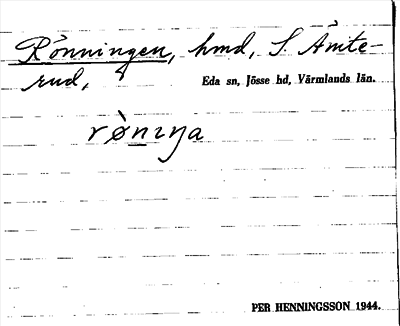 Rönningen, hmd, S. Åmte-
rud,
Eda sn, Jösse hd, Värmlands län.
rø̀nıŋa
PER HENNINGSSON 1944.